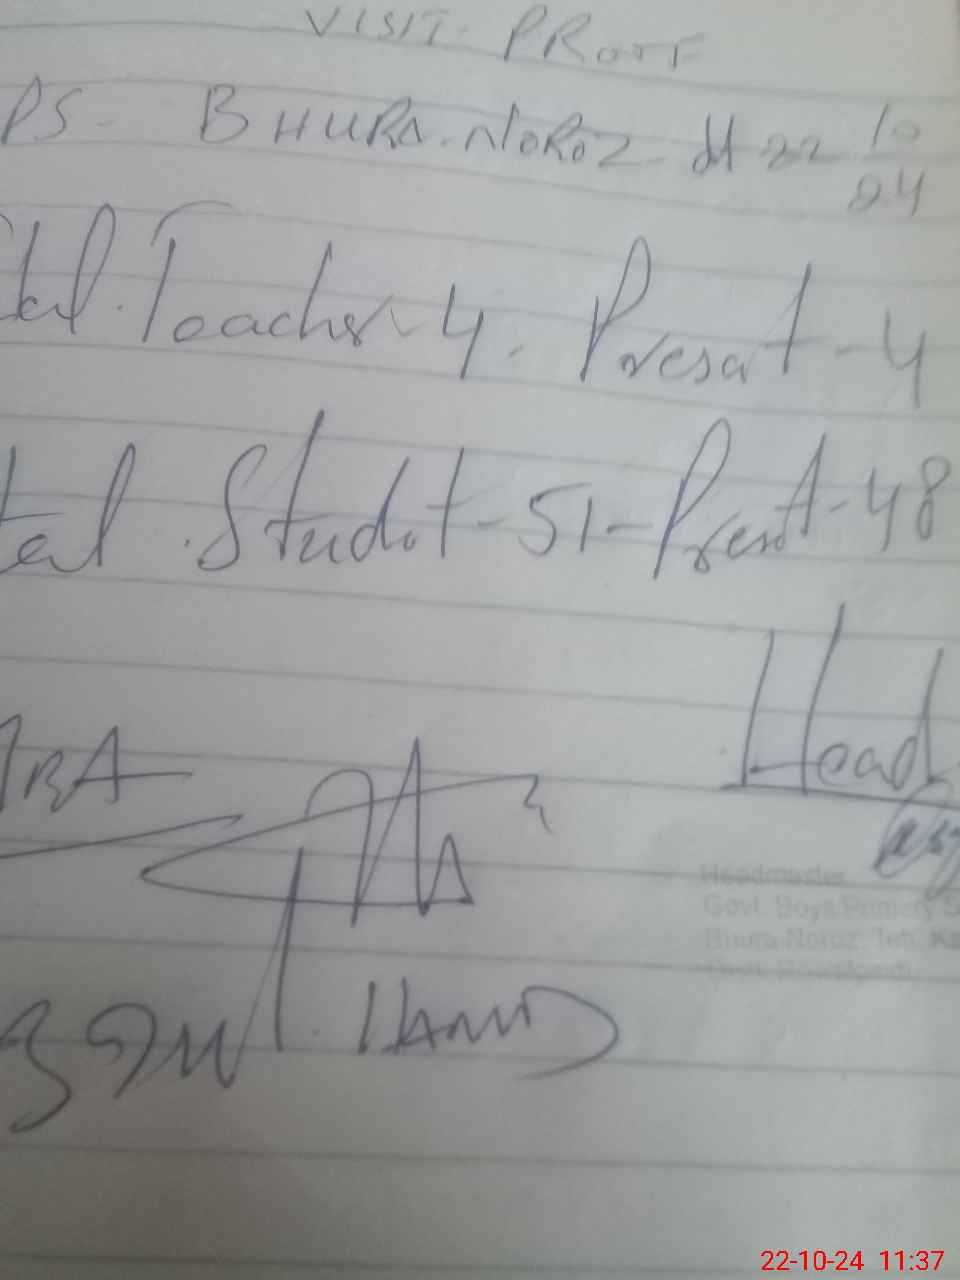 VISIT- PROOF
PS- BHURA.NOROZ dt 22 10/24
tal. Teacher-4. Present-4
tal Student-51-Present-48
Head
Headmaster
Govt. Boys Primary S
Bhura Noroz, Teh. Ka
Distt. Rawalpindi
HAMID
22-10-24 11:37